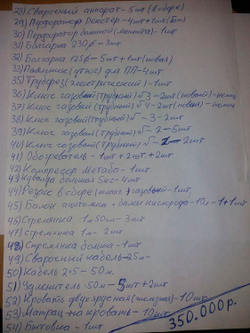 28) Сварочный аппарат - 5шт (в сборе)
29) Перфоратор Декстер - 4шт + 1шт (Бт)
30) Перфоратор бытовой - 1шт
31) Болгарка 230р - 3шт
32) Болгарка 125р - 5шт + 1шт (новая)
33) Паяльник (утюг) для ПП - 4шт
35) Труборез (электрический) - 1шт
36) Ключ газовый (трубный) √ 3 - 2шт (новый)
37) Ключ газовый (трубный) √ 4 - 2шт (новый)
38) Ключ газовый (трубный) √ - 3 - 2шт
39) Ключ газовый (трубный) √ - 2 - 5шт
40) Ключ газовый (трубный) √ - 2шт
41) Обогреватель - 1шт + 2шт + 2шт
42) Компрессор метабо - 1шт
43) Кувалда большая 5кг - 4шт
44) Резак в сборе газовый - 1шт
45) Балон - балон кислорода - 10л - 1+1шт
46) Стремянка 1м 50м - 3шт
47) стремянка 1м - 2шт
48) Стремянка больша - 1шт
49) Сварочный кабель - 25м
50) Кабель 2*5 - 50м.
51) Удленитель 50м - 5шт + 2шт
52) Кровать двухярусная (железная) - 10шт
53) Матрац на кровать - 10шт
54) Бытовка - 1шт
350,000р.